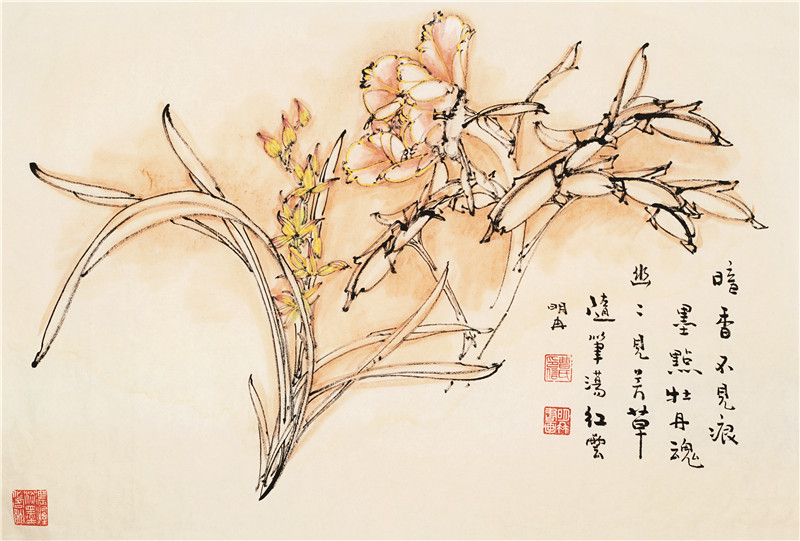 暗香不見痕
墨點牡丹魂
幽〻見芳草
隨筆蕩紅雲
明冉